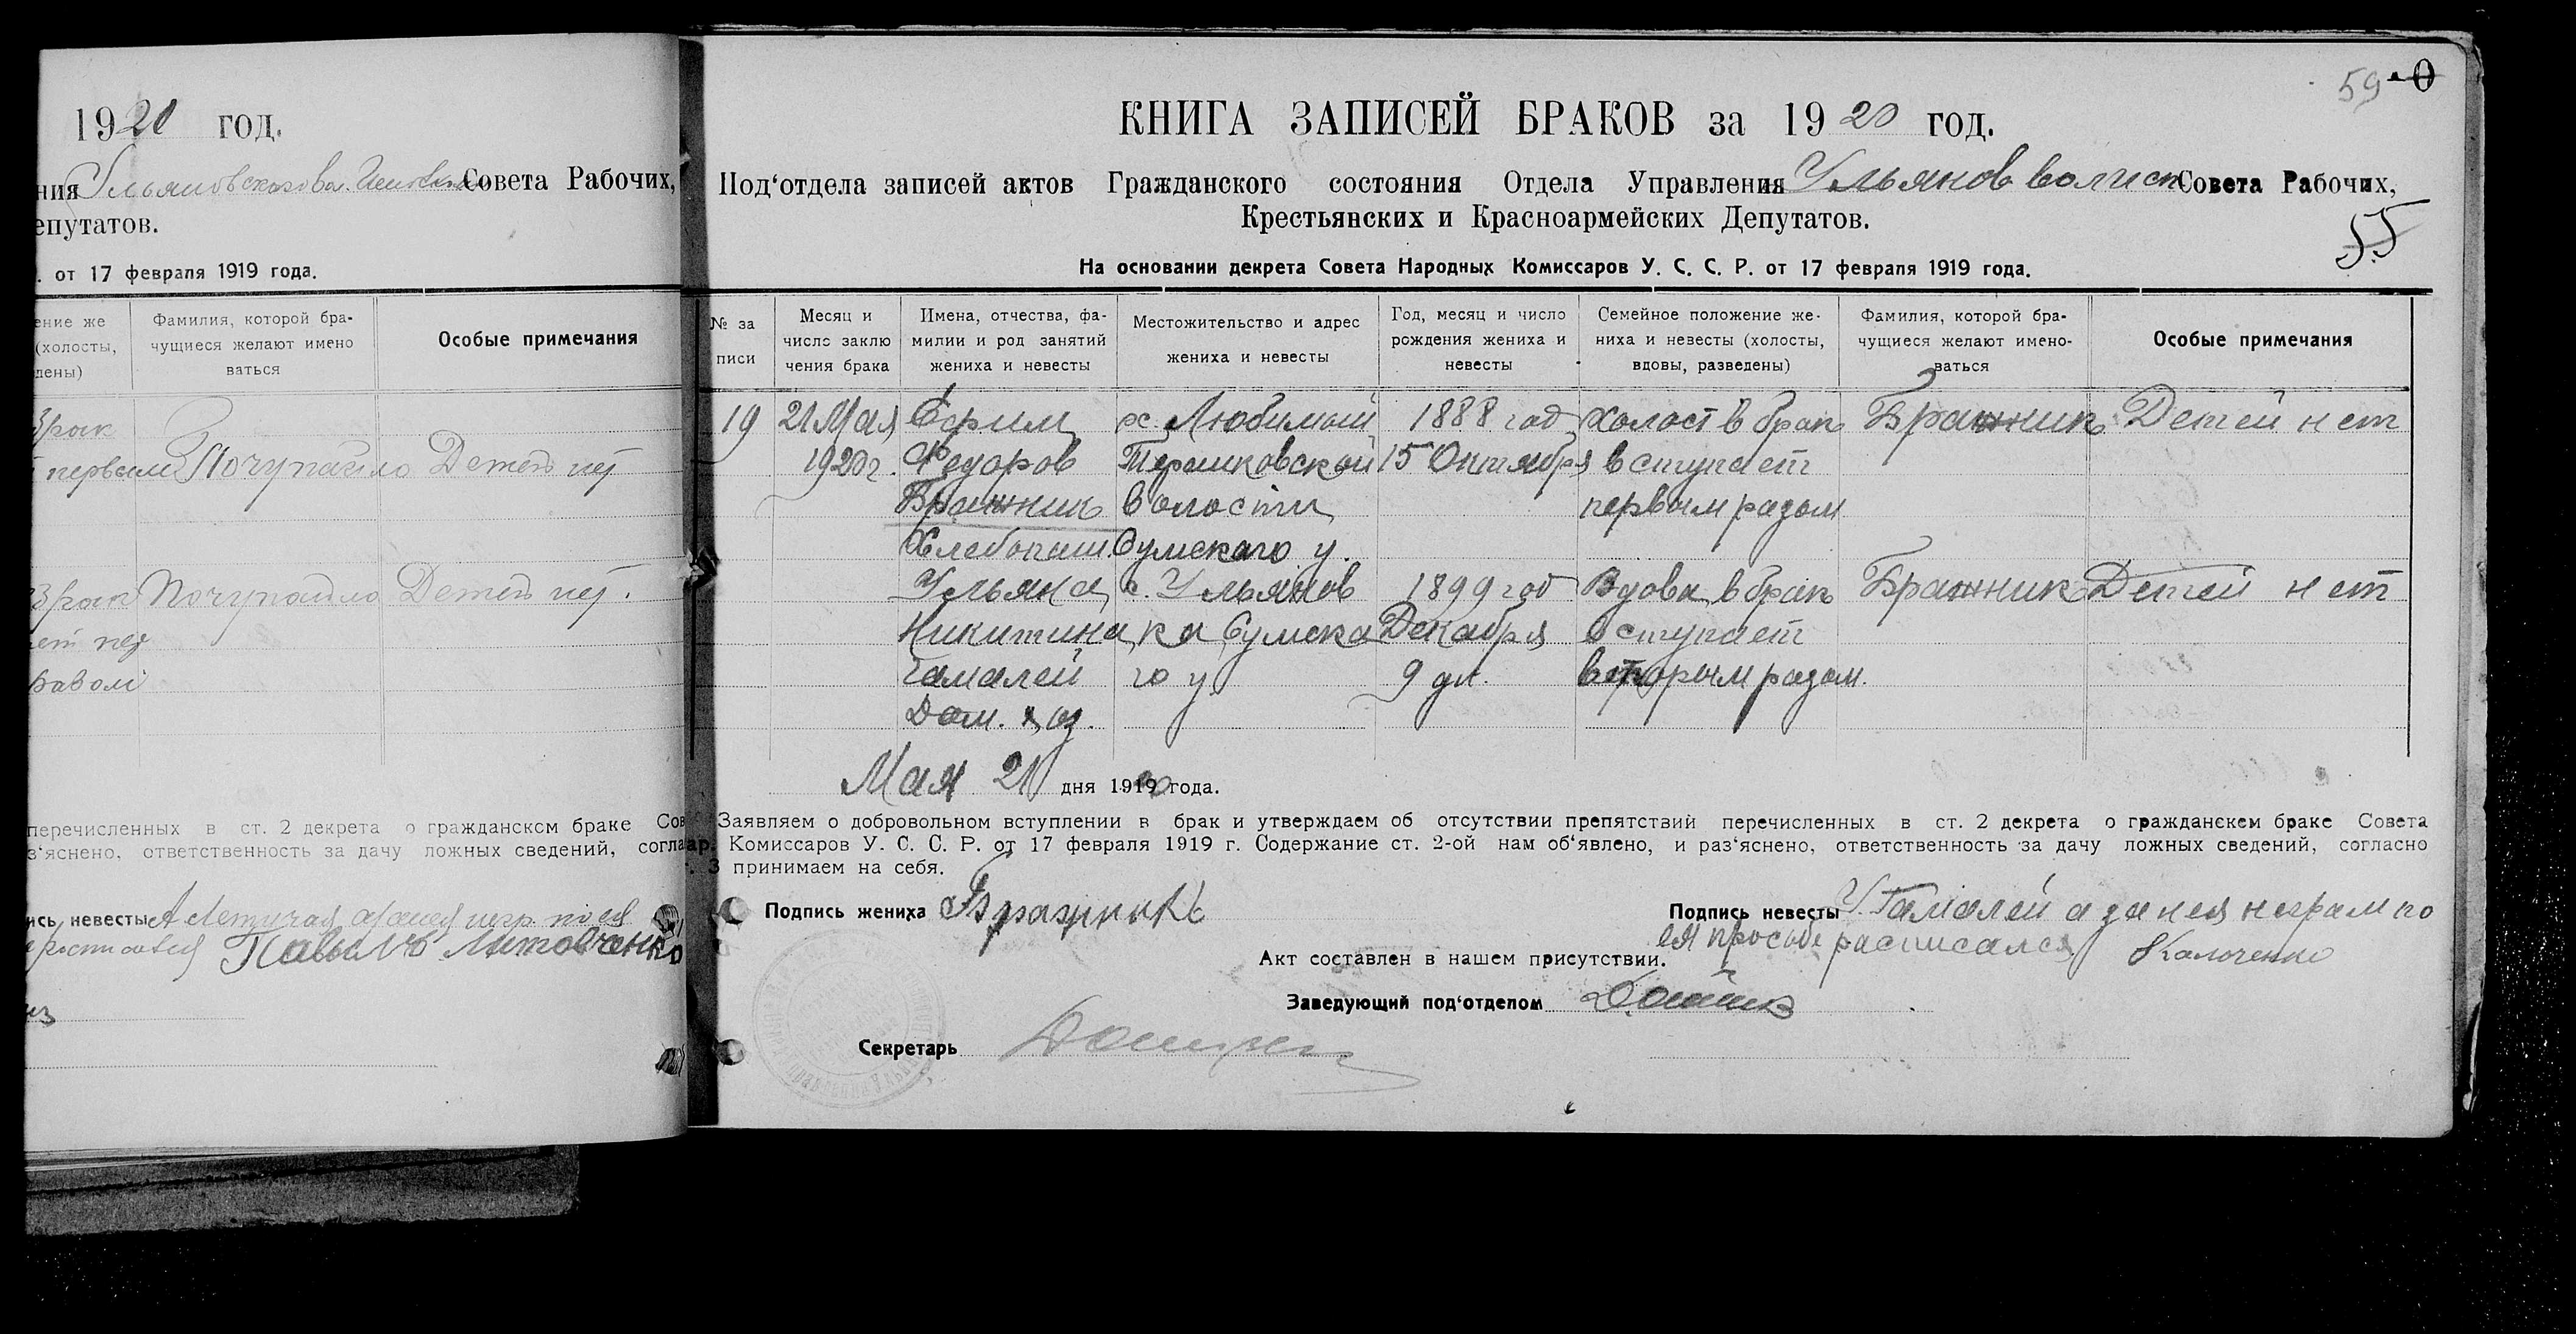 1920 год.
ния Ульяновского вол. Совета Рабочих,
епутатов.
. от 17 февраля 1919 года.
ение же
(холосты,
дены)
Фамилия, которой бра-
чущиеся желают имено
ваться
Особые примечания
брак
первым Почупайло Детей нет
брак Почупайло Детей нет.
ет пер
браком
перечисленных в ст. 2 декрета о гражданском браке Сов
з'яснено, ответственность за дачу ложных сведений, согла
ись невесты А Летучая а за нея негр. по ея
росписался Павыло Литовченко
59 0
КНИГА ЗАПИСЕЙ БРАКОВ за 1920 год.
Под'отдела записей актов Гражданского состояния Отдела Управления Ульянов волисп Совета Рабочих,
Крестьянских и Красноармейских Депутатов.
55
На основании декрета Совета Народных Комиссаров У. С. С. Р. от 17 февраля 1919 года.
№ за
писи
Месяц и
число заклю
чения брака
Имена, отчества, фа-
милии и род занятий
жениха и невесты
Местожительство и адрес
жениха и невесты
Год, месяц и число
рождения жениха и
невесты
Семейное положение же-
ниха и невесты (холосты,
вдовы, разведены)
Фамилия, которой бра-
чущиеся желают имено-
ваться
Особые примечания
19 21 Мая Ефим х. Любимый 1888 год холост в брак Бражник Детей нет
1920 г. Федоров Терешковской 15 Октября вступает
Бражник волости первым разом
Хлебопаш. Сумскаго у.
Ульяна с. Ульянов 1899 год Вдова в брак Бражник Детей нет
Никитина ка Сумска Декабря вступает
Гамалей го у. 9 дн. вторым разом.
Дом. хоз.
Мая 21 дня 1920 года.
Заявляем о добровольном вступлении в брак и утверждаем об отсутствии препятствий перечисленных в ст. 2 декрета о гражданскем браке Совета
ар. Комиссаров У. С. С. Р. от 17 февраля 1919 г. Содержание ст. 2-ой нам об'явлено, и раз'яснено, ответственность за дачу ложных сведений, согласно
. 3 принимаем на себя.
Подпись жениха Бражникъ
Подпись невесты У. Гамалей а за нея неграм по
ея прособе расписался Калюченко
Акт составлен в нашем присутствии.
Заведующий под'отделом
Секретарь